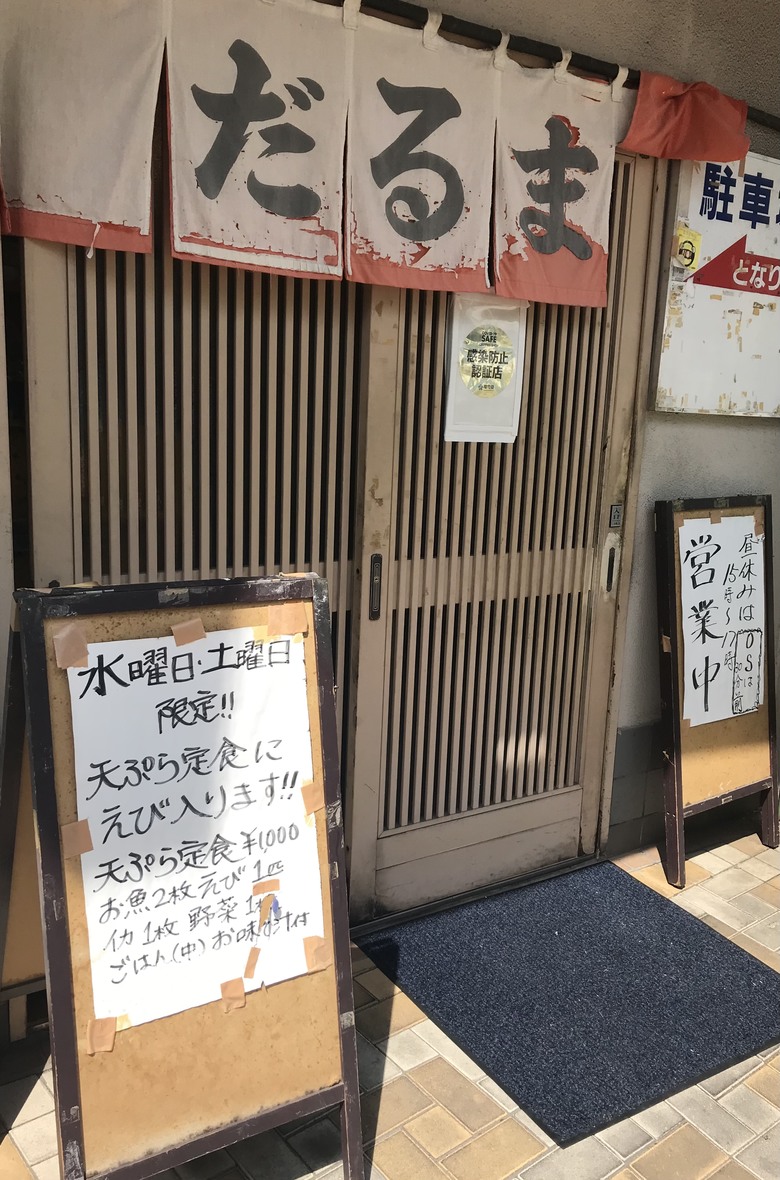 だるま
駐車
となり
SAFE
感染防止
認証店
水曜日・土曜日
限定!!
天ぷら定食に
えび入ります!!
天ぷら定食¥1,000
お魚2枚 えび1匹
イカ1枚 野菜1
ごはん(中) お味汁付
営業中
昼休みは
15時〜17時
OSは
30分前